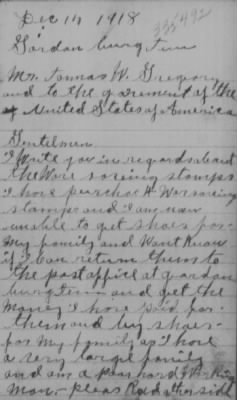 Dec 14 1918
335492
Gordon burg Tinn
Mr. Tommas W. Gregory
and to the goverment of the
United States of America
Gentelmen
I write you in regards about
the Wore saveing stamps
I hove purchased War saveing
stamps and I am now
unable to get shoes for
my family and Want Know
if I can return them to
the post office at gordon
burg tinn and get the
money I hove paid for
them and buy shoes
for my family as I hove
a very large family
and am a poor hard working
man - pleas Read other side